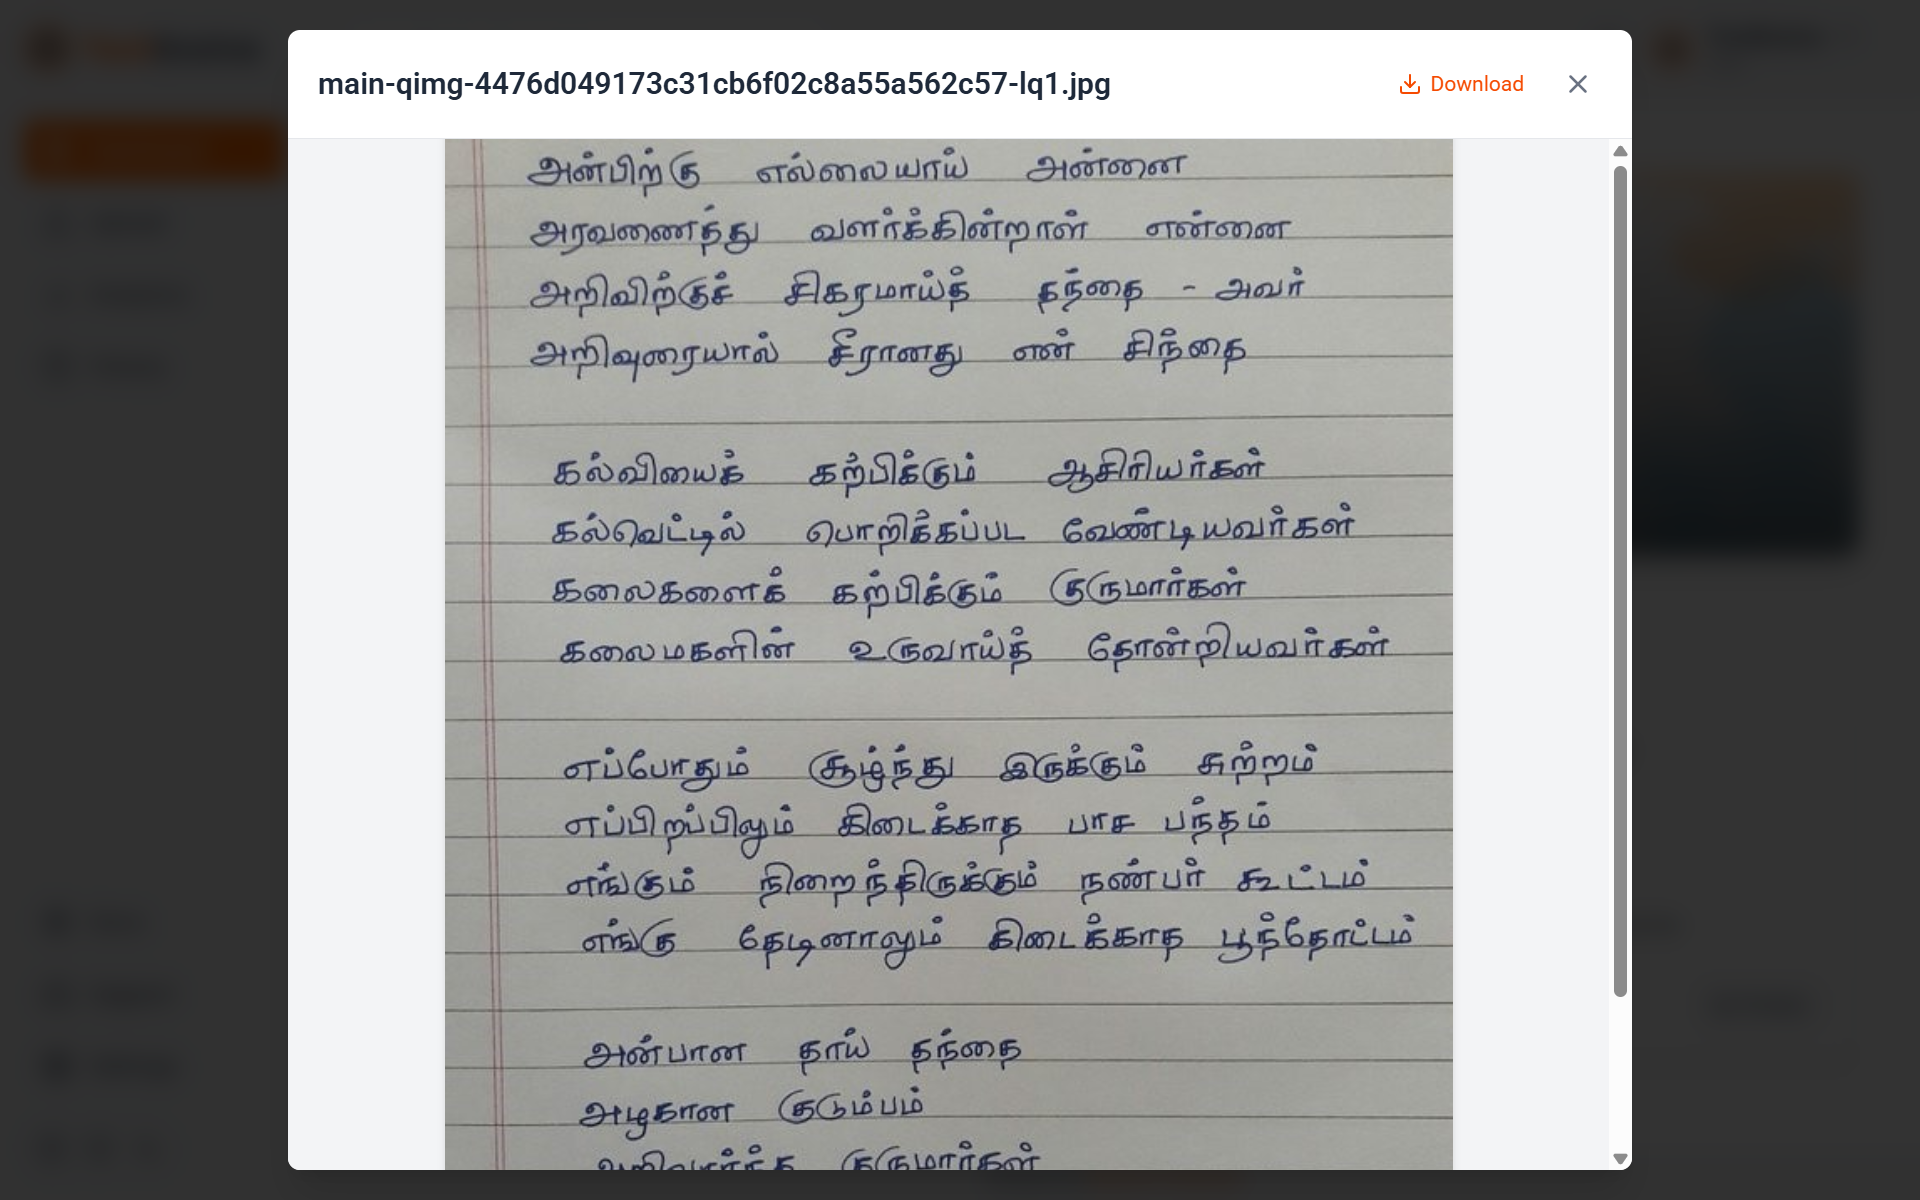 main-qimg-4476d049173c31cb6f02c8a55a562c57-lq1.jpg Download
அன்பிற்கு எல்லையாய் அன்னை
அரவணைத்து வளர்க்கின்றாள் என்னை
அறிவிற்குச் சிகரமாய்த் தந்தை - அவர்
அறிவுரையால் சீரானது என் சிந்தை
கல்வியைக் கற்பிக்கும் ஆசிரியர்கள்
கல்வெட்டில் பொறிக்கப்பட வேண்டியவர்கள்
கலைகளைக் கற்பிக்கும் குருமார்கள்
கலைமகளின் உருவாய்த் தோன்றியவர்கள்
எப்போதும் சூழ்ந்து இருக்கும் சுற்றம்
எப்பிறப்பிலும் கிடைக்காத பாச பந்தம்
எங்கும் நிறைந்திருக்கும் நண்பர் கூட்டம்
எங்கு தேடினாலும் கிடைக்காத பூந்தோட்டம்
அன்பான தாய் தந்தை
அழகான குடும்பம்
குருமார்கள்